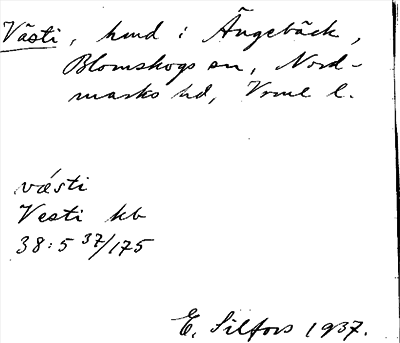 Västi, hmd i Ängebäck,
Blomskogs sn, Nord-
marks hd, Vrml l.
vǽsti
Vesti kb
38:5 37/175
E. Silfors 1937.